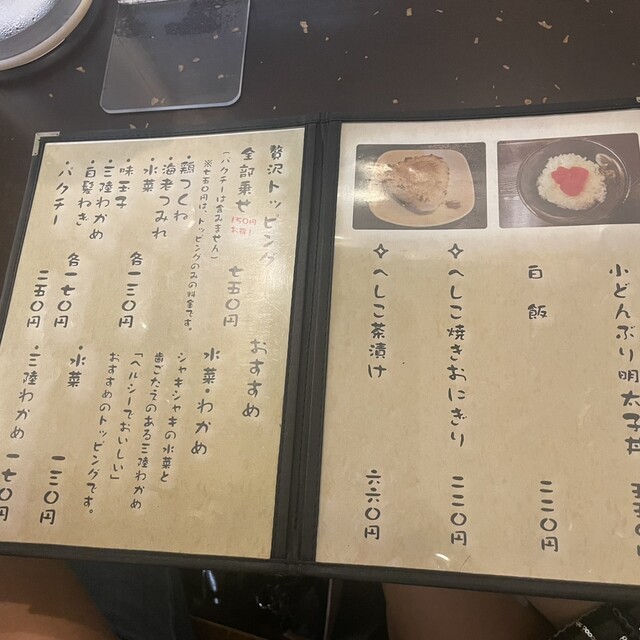 小どんぶり明太子丼
白飯 二二〇円
✧へしこ焼きおにぎり 二二〇円
✧へしこ茶漬け 六六〇円
贅沢トッピング
全部乗せ 150円お得! 七五〇円
「パクチーは含みません」
※七五〇円は、トッピングのみの料金です。
・鶏つくね
・海老つみれ
・水菜
各一三〇円
・味玉子
・三陸わかめ
・白髪ねぎ
各一七〇円
・パクチー
二五〇円
おすすめ
水菜・わかめ
シャキシャキの水菜と
歯ごたえのある三陸わかめ
「ヘルシーでおいしい」
おすすめのトッピングです。
・水菜 一三〇円
・三陸わかめ 一七〇円